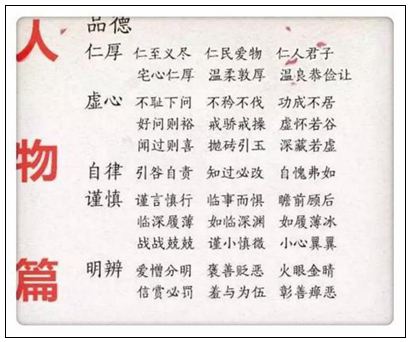 人物篇
品德
仁厚 仁至义尽 仁民爱物 仁人君子
宅心仁厚 温柔敦厚 温良恭俭让
虚心 不耻下问 不矜不伐 功成不居
好问则裕 戒骄戒躁 虚怀若谷
闻过则喜 抛砖引玉 深藏若虚
自律 引咎自责 知过必改 自愧弗如
谨慎 谨言慎行 临事而惧 瞻前顾后
临深履薄 如临深渊 如履薄冰
战战兢兢 谨小慎微 小心翼翼
明辨 爱憎分明 褒善贬恶 火眼金睛
信赏必罚 羞与为伍 彰善瘅恶